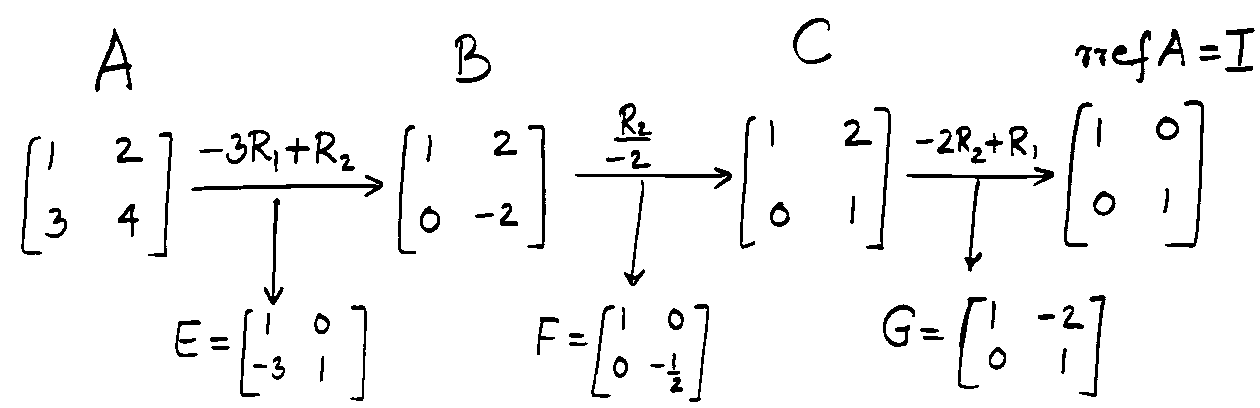 A B C rref A = I
[1 2; 3 4] -3R₁+R₂ → [1 2; 0 -2] R₂/-2 → [1 2; 0 1] -2R₂+R₁ → [1 0; 0 1]
E = [1 0; -3 1] F = [1 0; 0 -1/2] G = [1 -2; 0 1]